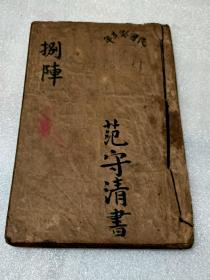 捌陣
范守清書